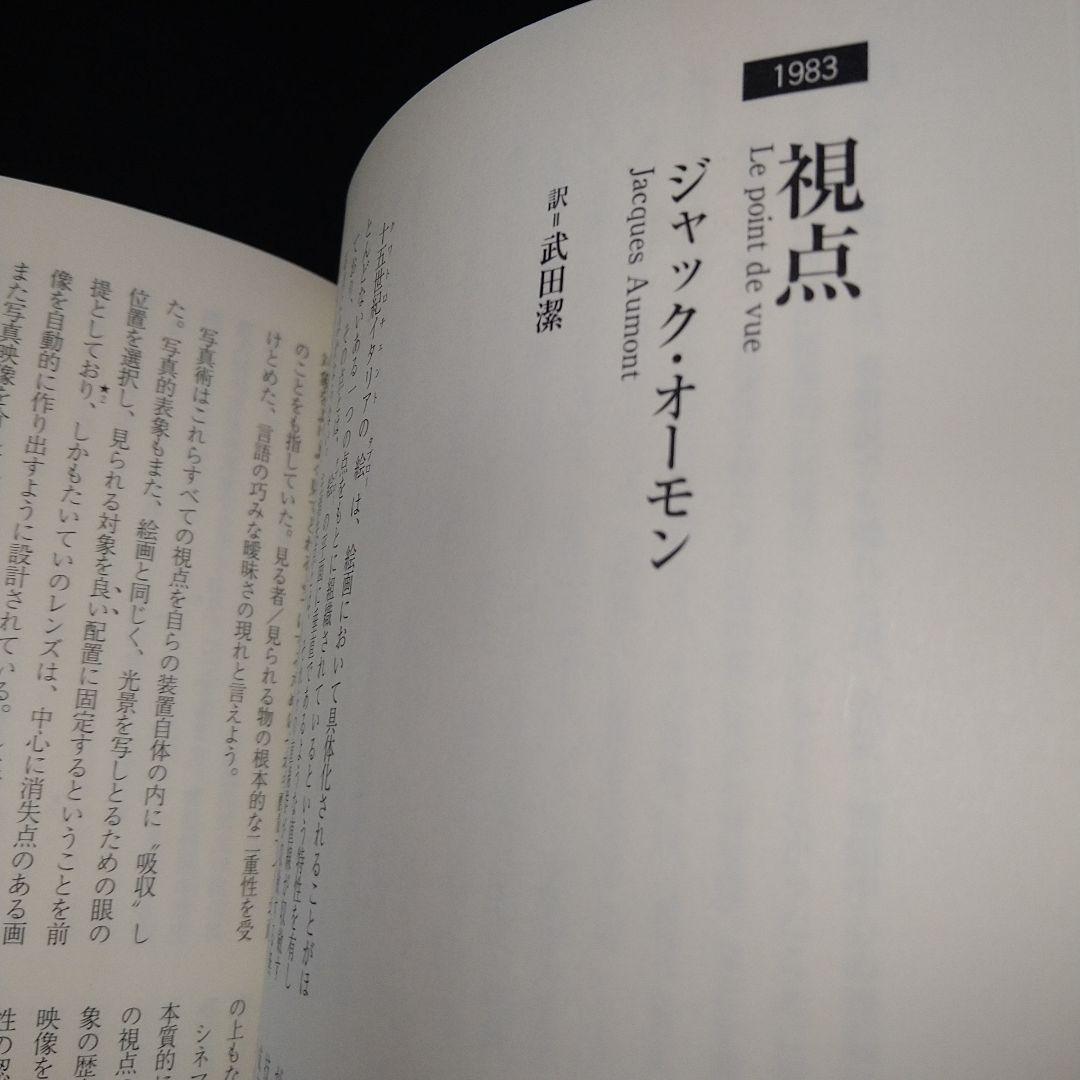 1983
視点
Le point de vue
ジャック・オーモン
Jacques Aumont
訳=武田潔
十五世紀イタリアの絵は、絵画において具体化されることがほ
クワトロチェント
タブロー
とんどないある一つの点をもとに組織されているという特性を有し
ており、その点とは、絵の平面に垂直であるような直線が収斂す
のことをも指していた。見る者/見られる物の根本的な二重性を受
けとめた、言語の巧みな曖昧さの現れと言えよう。
写真術はこれらすべての視点を自らの装置自体の内に〝吸収〟し
た。写真的表象もまた、絵画と同じく、光景を写しとるための眼の
位置を選択し、見られる対象を良い配置に固定するということを前
提としており、しかもたいていのレンズは、中心に消失点のある画
★2
像を自動的に作り出すように設計されている。
また写真映像を
の上もな
シネマ
本質的に
の視点
象の歴
映像を
性の